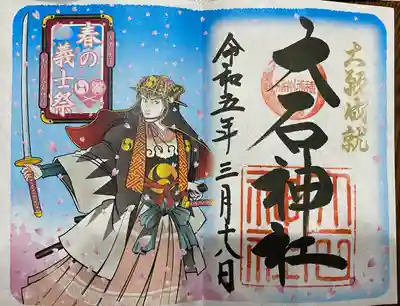 大願成就
大石神社
令和五年三月十八日
春の
義士祭